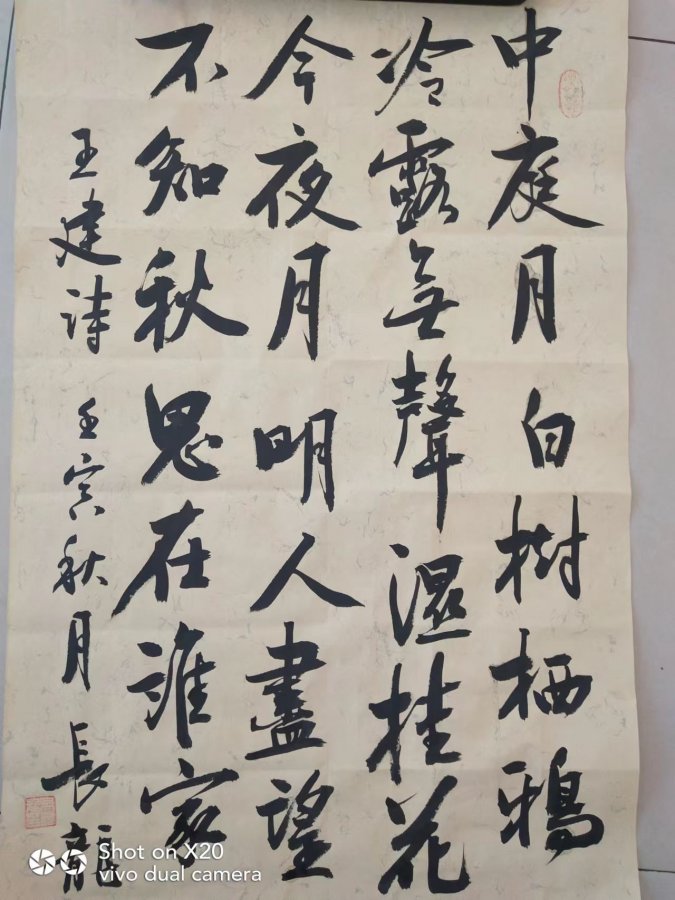 中庭月白樹栖鴉
冷露無聲濕桂花
今夜月明人盡望
不知秋思在誰家
王建詩 壬寅秋月 長龍
Shot on X20
vivo dual camera